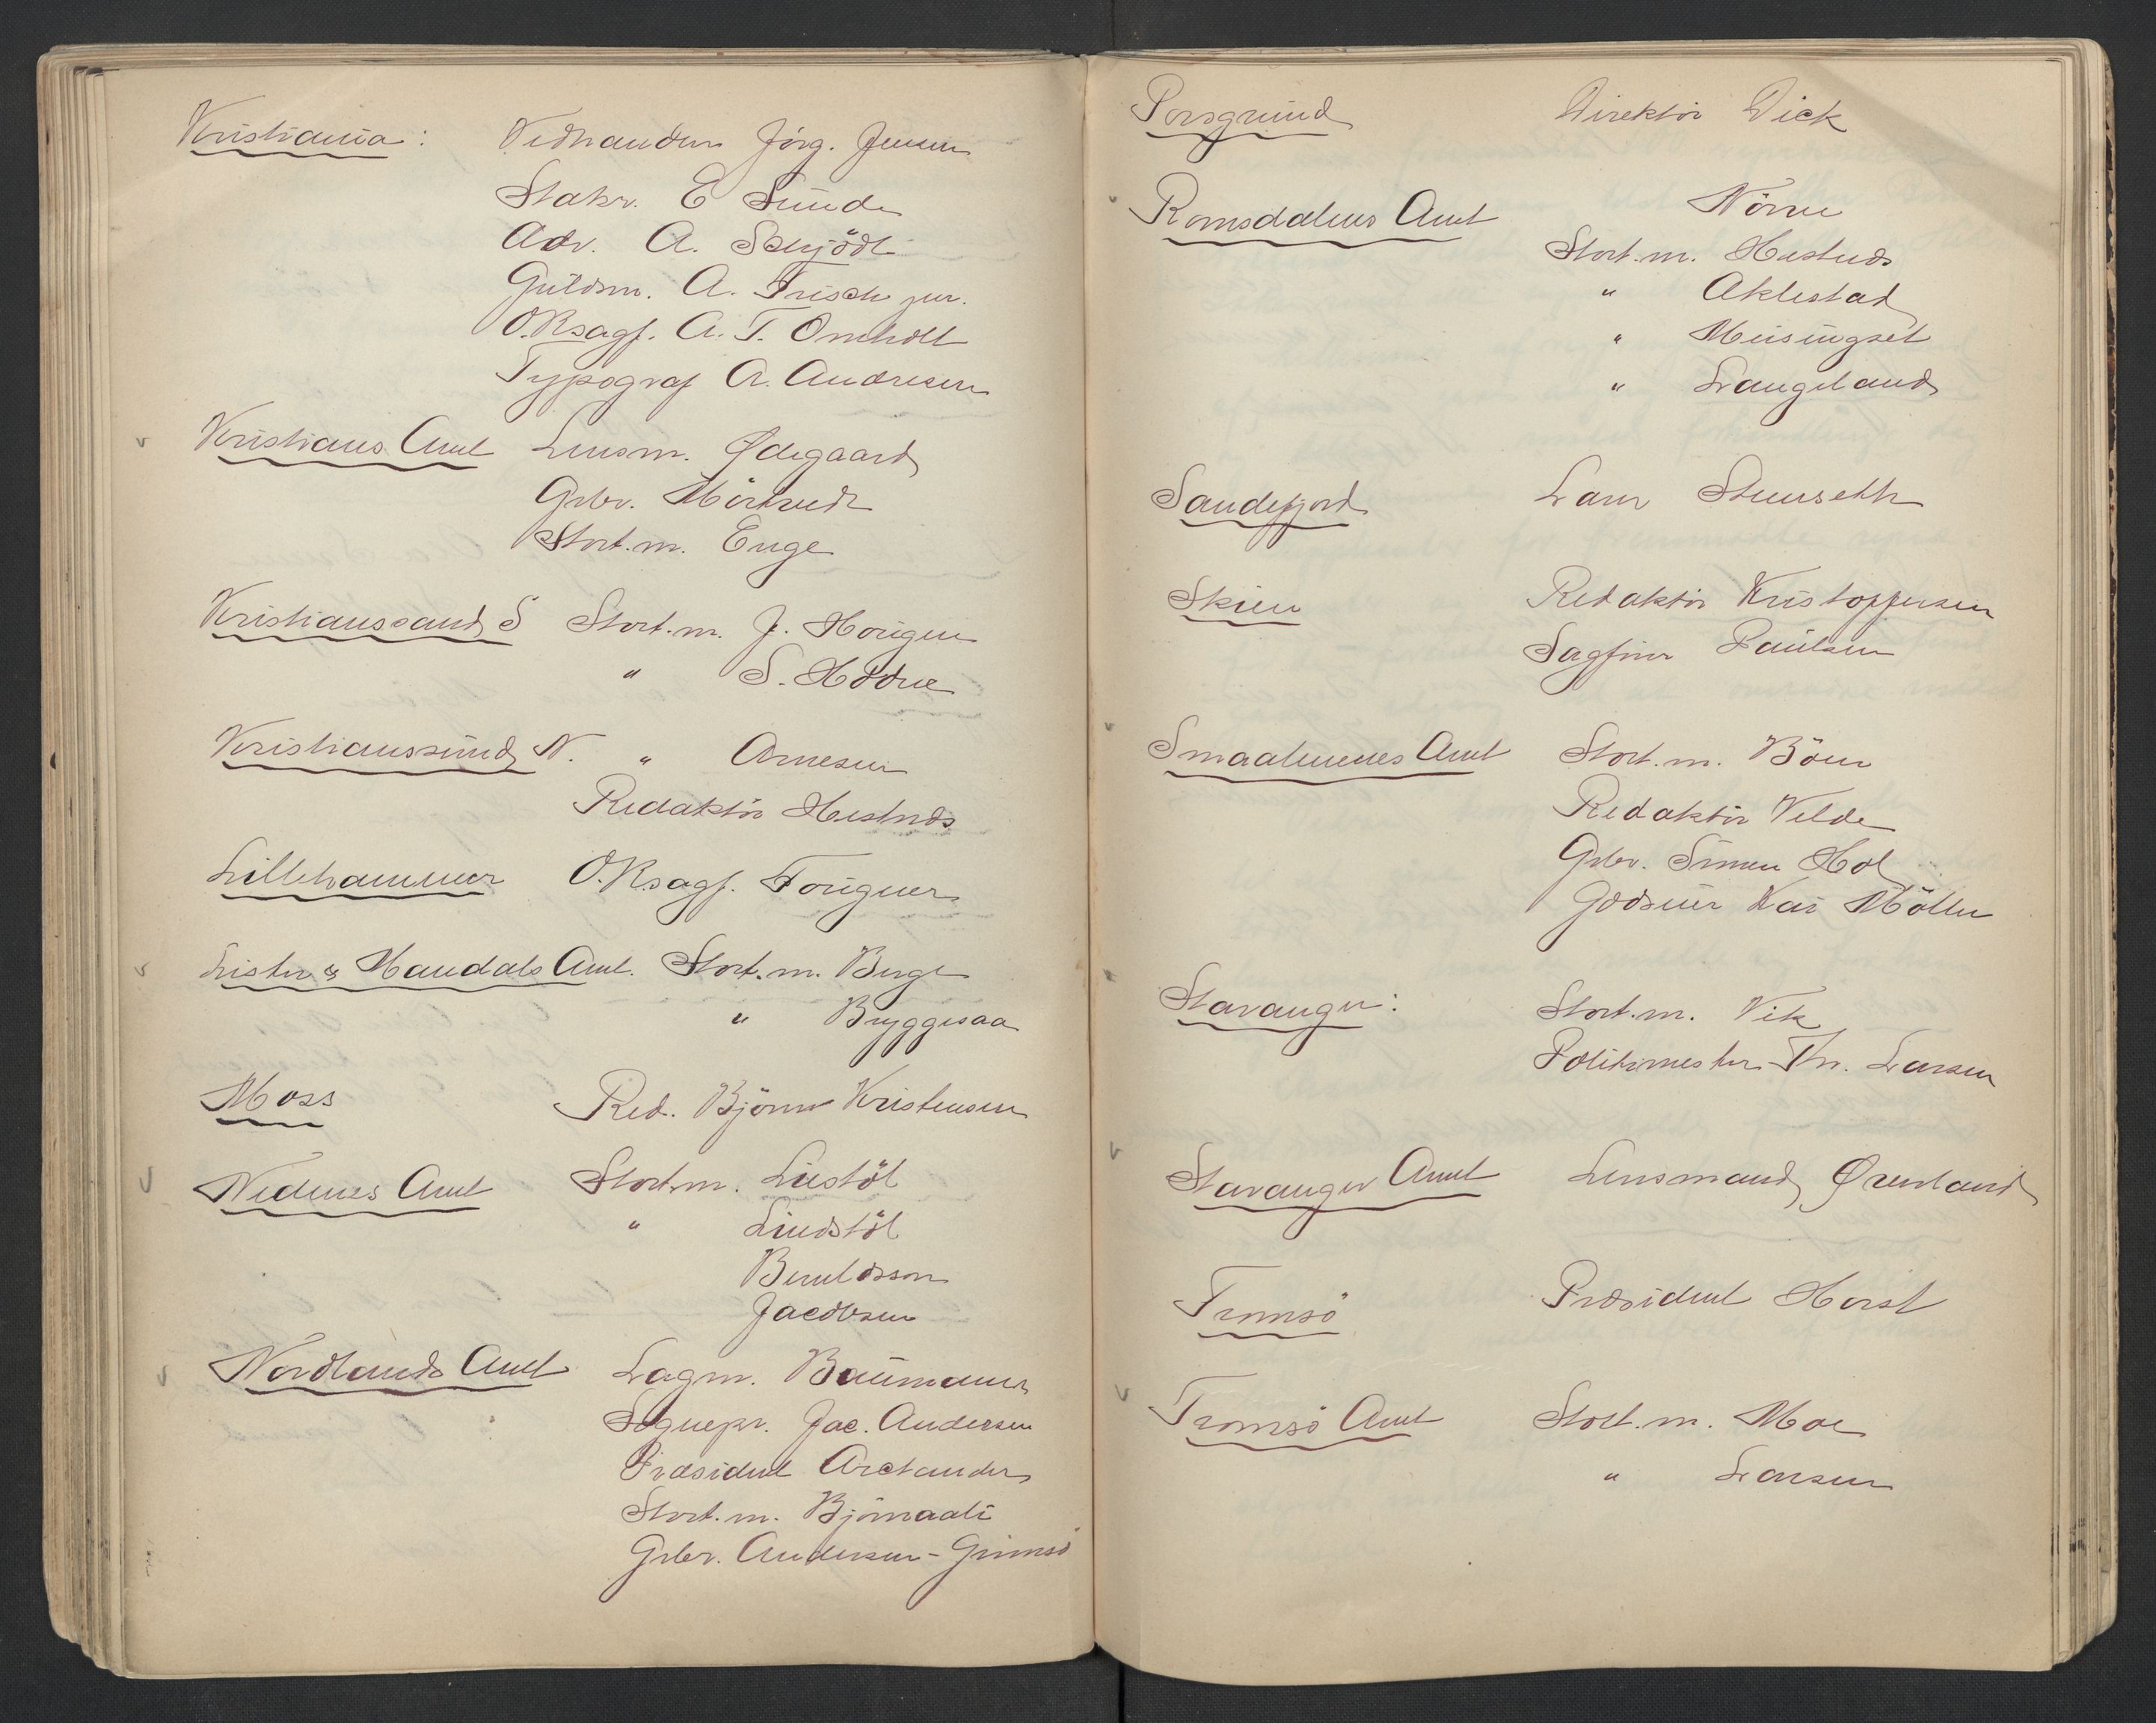 Kristiania: Vedhandler Jörg. Jensen
Statsr. E Sunde
Adv. A. Schjödt
Guldsm. A. Frisch jun.
O.Rsagf. A. T. Omholt
Typograf A. Andresen
v Kristians Amt Lensm. Ødegaard
Grbr. Mörkved
Stort.m. Enge
Kristianssand S Stort.m. J. Hougen
" S. Hodne
Kristianssund N. " Arnesen
Redaktör Hestnes
Lillehammer O.Rsagf. Tougner
v Lister & Mandals Amt. Stort.m. Berge
" Bryggesaa
Moss Red. Björn Kristensen
v Nedenes Amt Stort.m. Liestöl
" Lindstöl
Berntsson
Jacobsen
v Nordlands Amt Lagm. Baumann
Sognepr. Jac. Andersen
Præsident Arctander
Stort.m. Björnaali
Grbr. Andersen-Grimsö
Porsgrund Direktör Dick
v Romsdalens Amt Nörve
Stort.m. Hestnes
" Aklestad
" Meisingset
" Langeland
Sandefjord Lars Stenseth
Skien Redaktör Kristoffersen
Sagfører Paulsen
v Smaalenenes Amt Stort.m. Böen
Redaktör Velde
Grbr. Simen Hol
Godseier Kai Möller
v Stavanger: Stort.m. Vik
Politimester Th. Larsen
v Stavanger Amt Lensmand Øverland
Tromsö Præsident Horst
v Tromsö Amt Stort.m. Moe
" Larsen